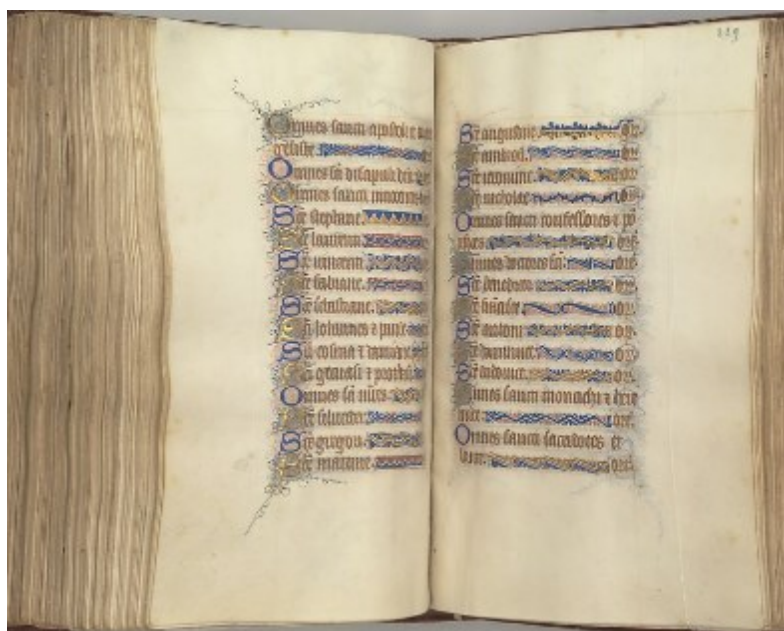 Omnes sancti apostoli et
geliste.
Omnes sci discipuli dni
Omnes sancti innocen
Sce stephane.
Sce laurenti
Sce vincenti
Sce fabiane.
Sce sebastiane.
Sci Johannes et paule
Sci cosma et damiane
Sci geruasi et prothasi
Omnes sci mres
Sce
Sce gregori
Sce martine.
119
Sce augustine. or.
Sce ambrosi. or.
Sce ieronime. or.
Sce nicholae. or.
Omnes sancti confessores et
or.
Omnes doctores sci. or.
Sce benedicte or.
Sce francisce or.
Sce antoni or.
Sce dominice or.
Sce ludouice or.
Omnes sancti monachi et here
mite or.
Omnes sancti sacerdotes et
leuite. or.